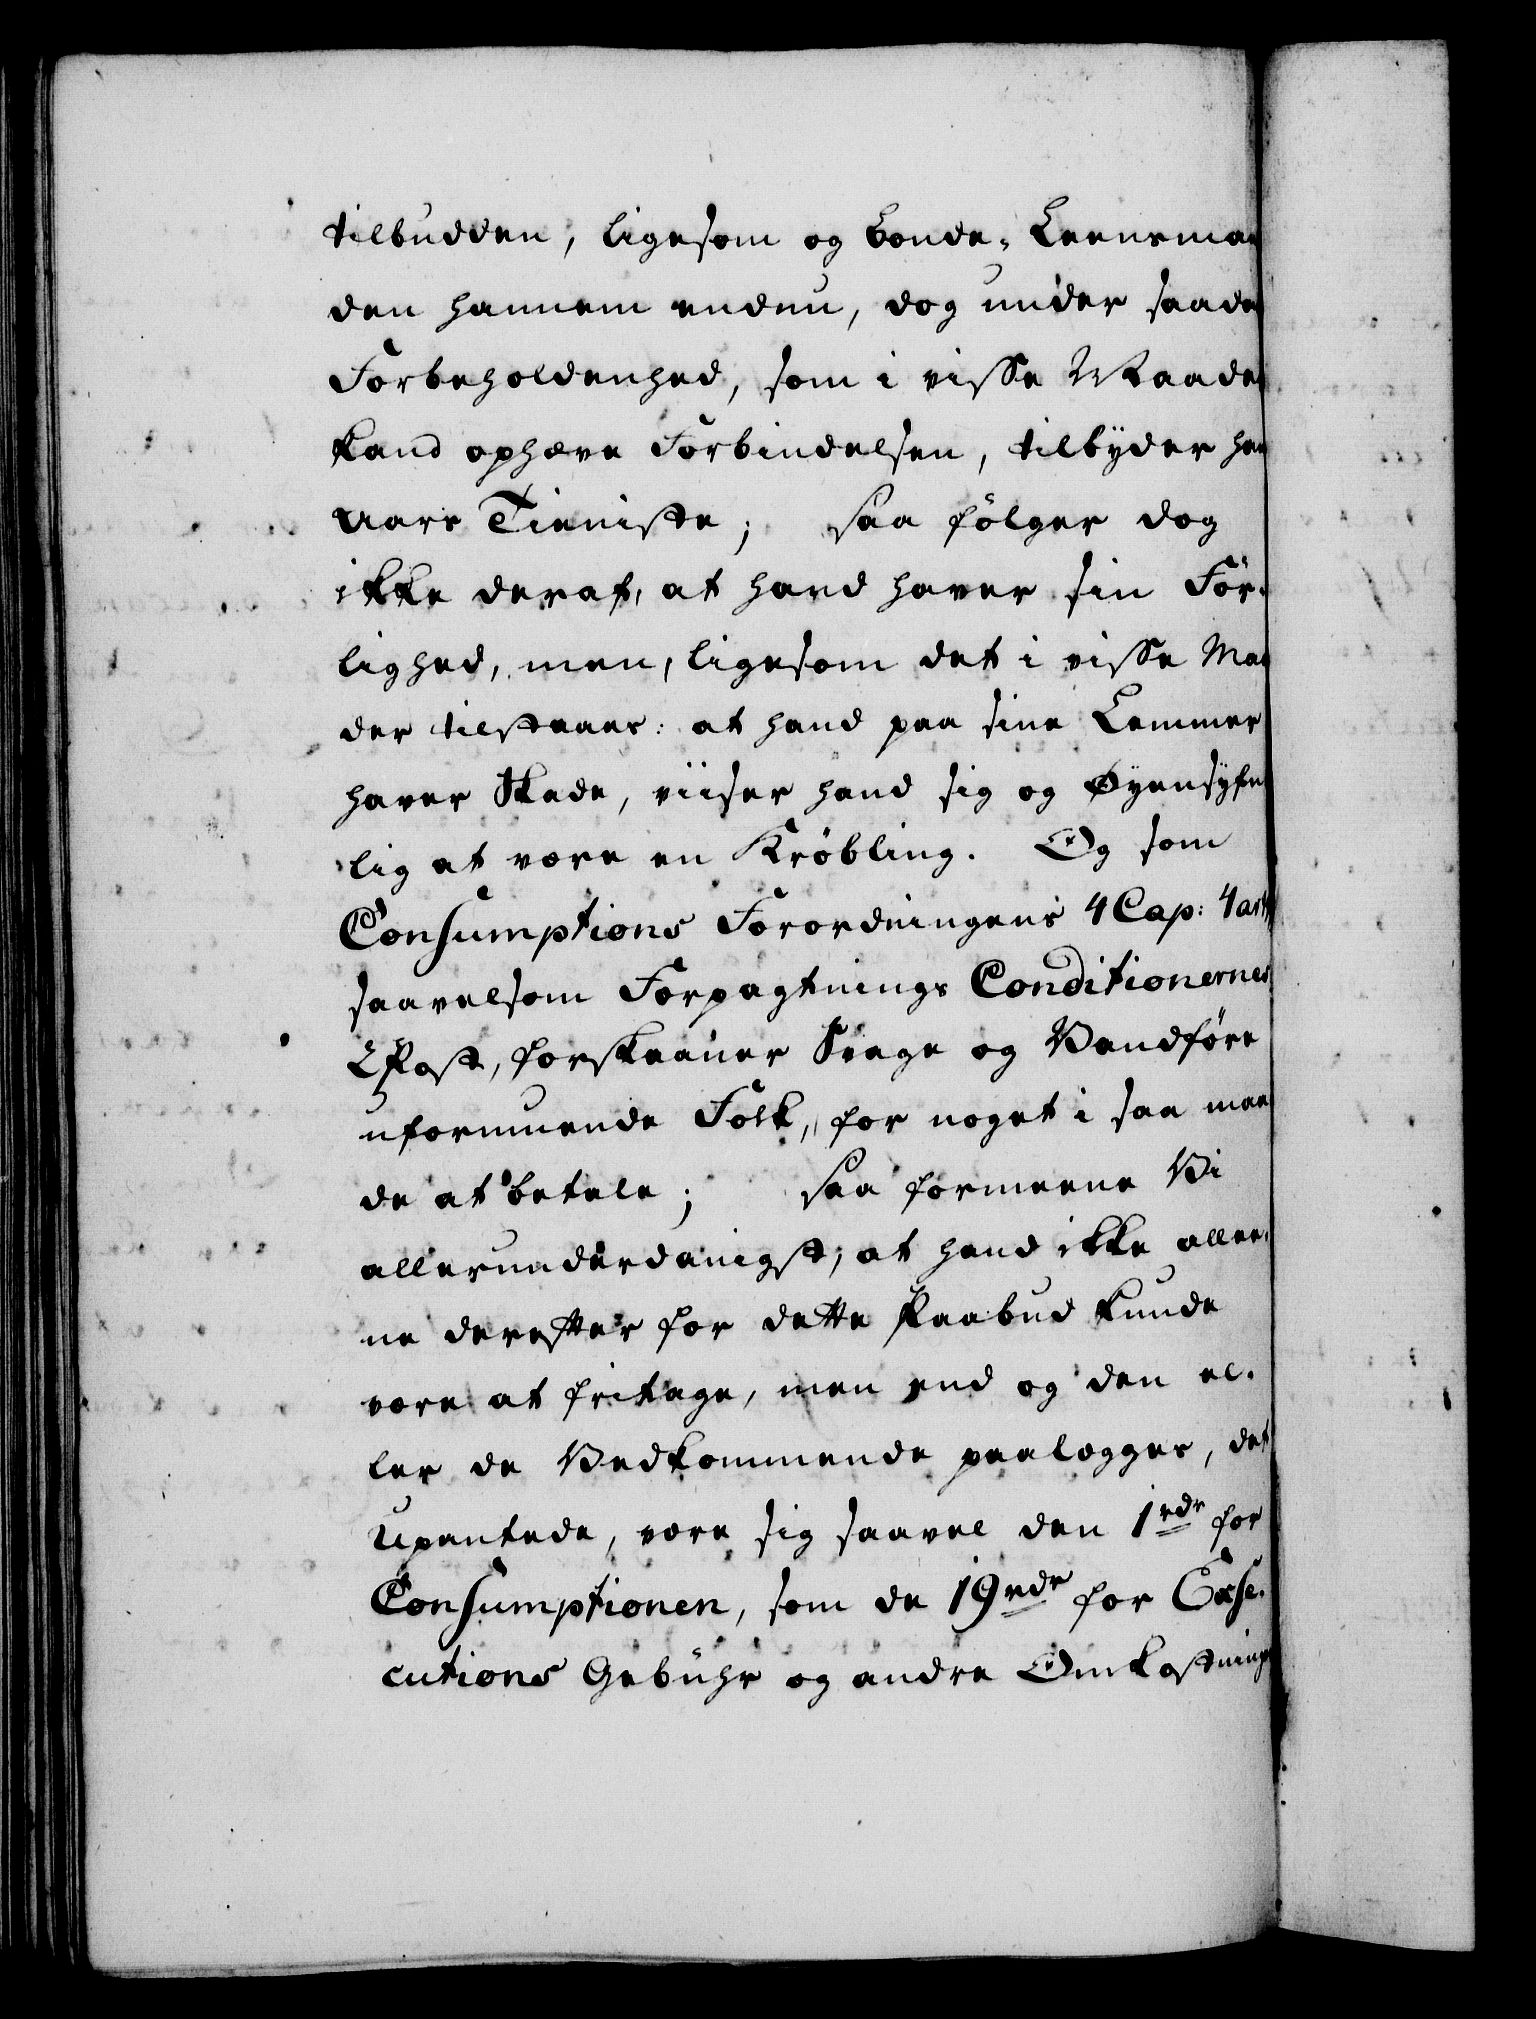 tilbudden, ligesom og bonde-Leensma
den hannem endnu, dog under saada
Forbeholdenhed, som i visse Maader
kand ophæve Forbindelsen, tilbyder ha
Aars Tieniste; saa følger dog
ikke deraf, at hand haver sin Før-
lighed, men, ligesom det i visse Maa
der tilstaaes: at hand paa sine Lemmer
haver Skade, viiser hand sig og Øyensyn
lig at være en Krøbling. Og som
Consumptions Forordningens 4 Cap: 4 art
saavelsom Forpagtnings Conditionernes
2 Post, forskaaner Svage og Vandføre
uformuende Folk, for noget i saa maa
de at betale; saa formeene Vi
allerunderdanigst, at hand ikke allee-
ne derefter for dette Paabud kunde
være at fritage, men end og den el-
ler de Vedkommende paalegges, det
Upantede, være sig saavel den 1 rdr for
Consumptionen, som de 19 rdr for Exse-
cutions Gebühr og andre Omkostning